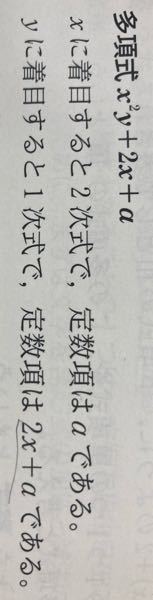 多項式 x²y+2x+a
xに着目すると2次式で，定数項はaである。
yに着目すると1次式で，定数項は2x+aである。